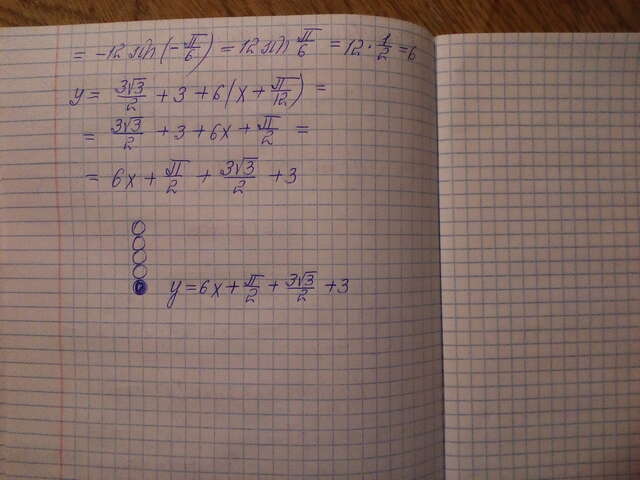 = -12 sin(-π/6) = 12 sin π/6 = 12 · 1/2 = 6
y = 3√3/2 + 3 + 6(x + π/12) =
= 3√3/2 + 3 + 6x + π/2 =
= 6x + π/2 + 3√3/2 + 3
y = 6x + π/2 + 3√3/2 + 3